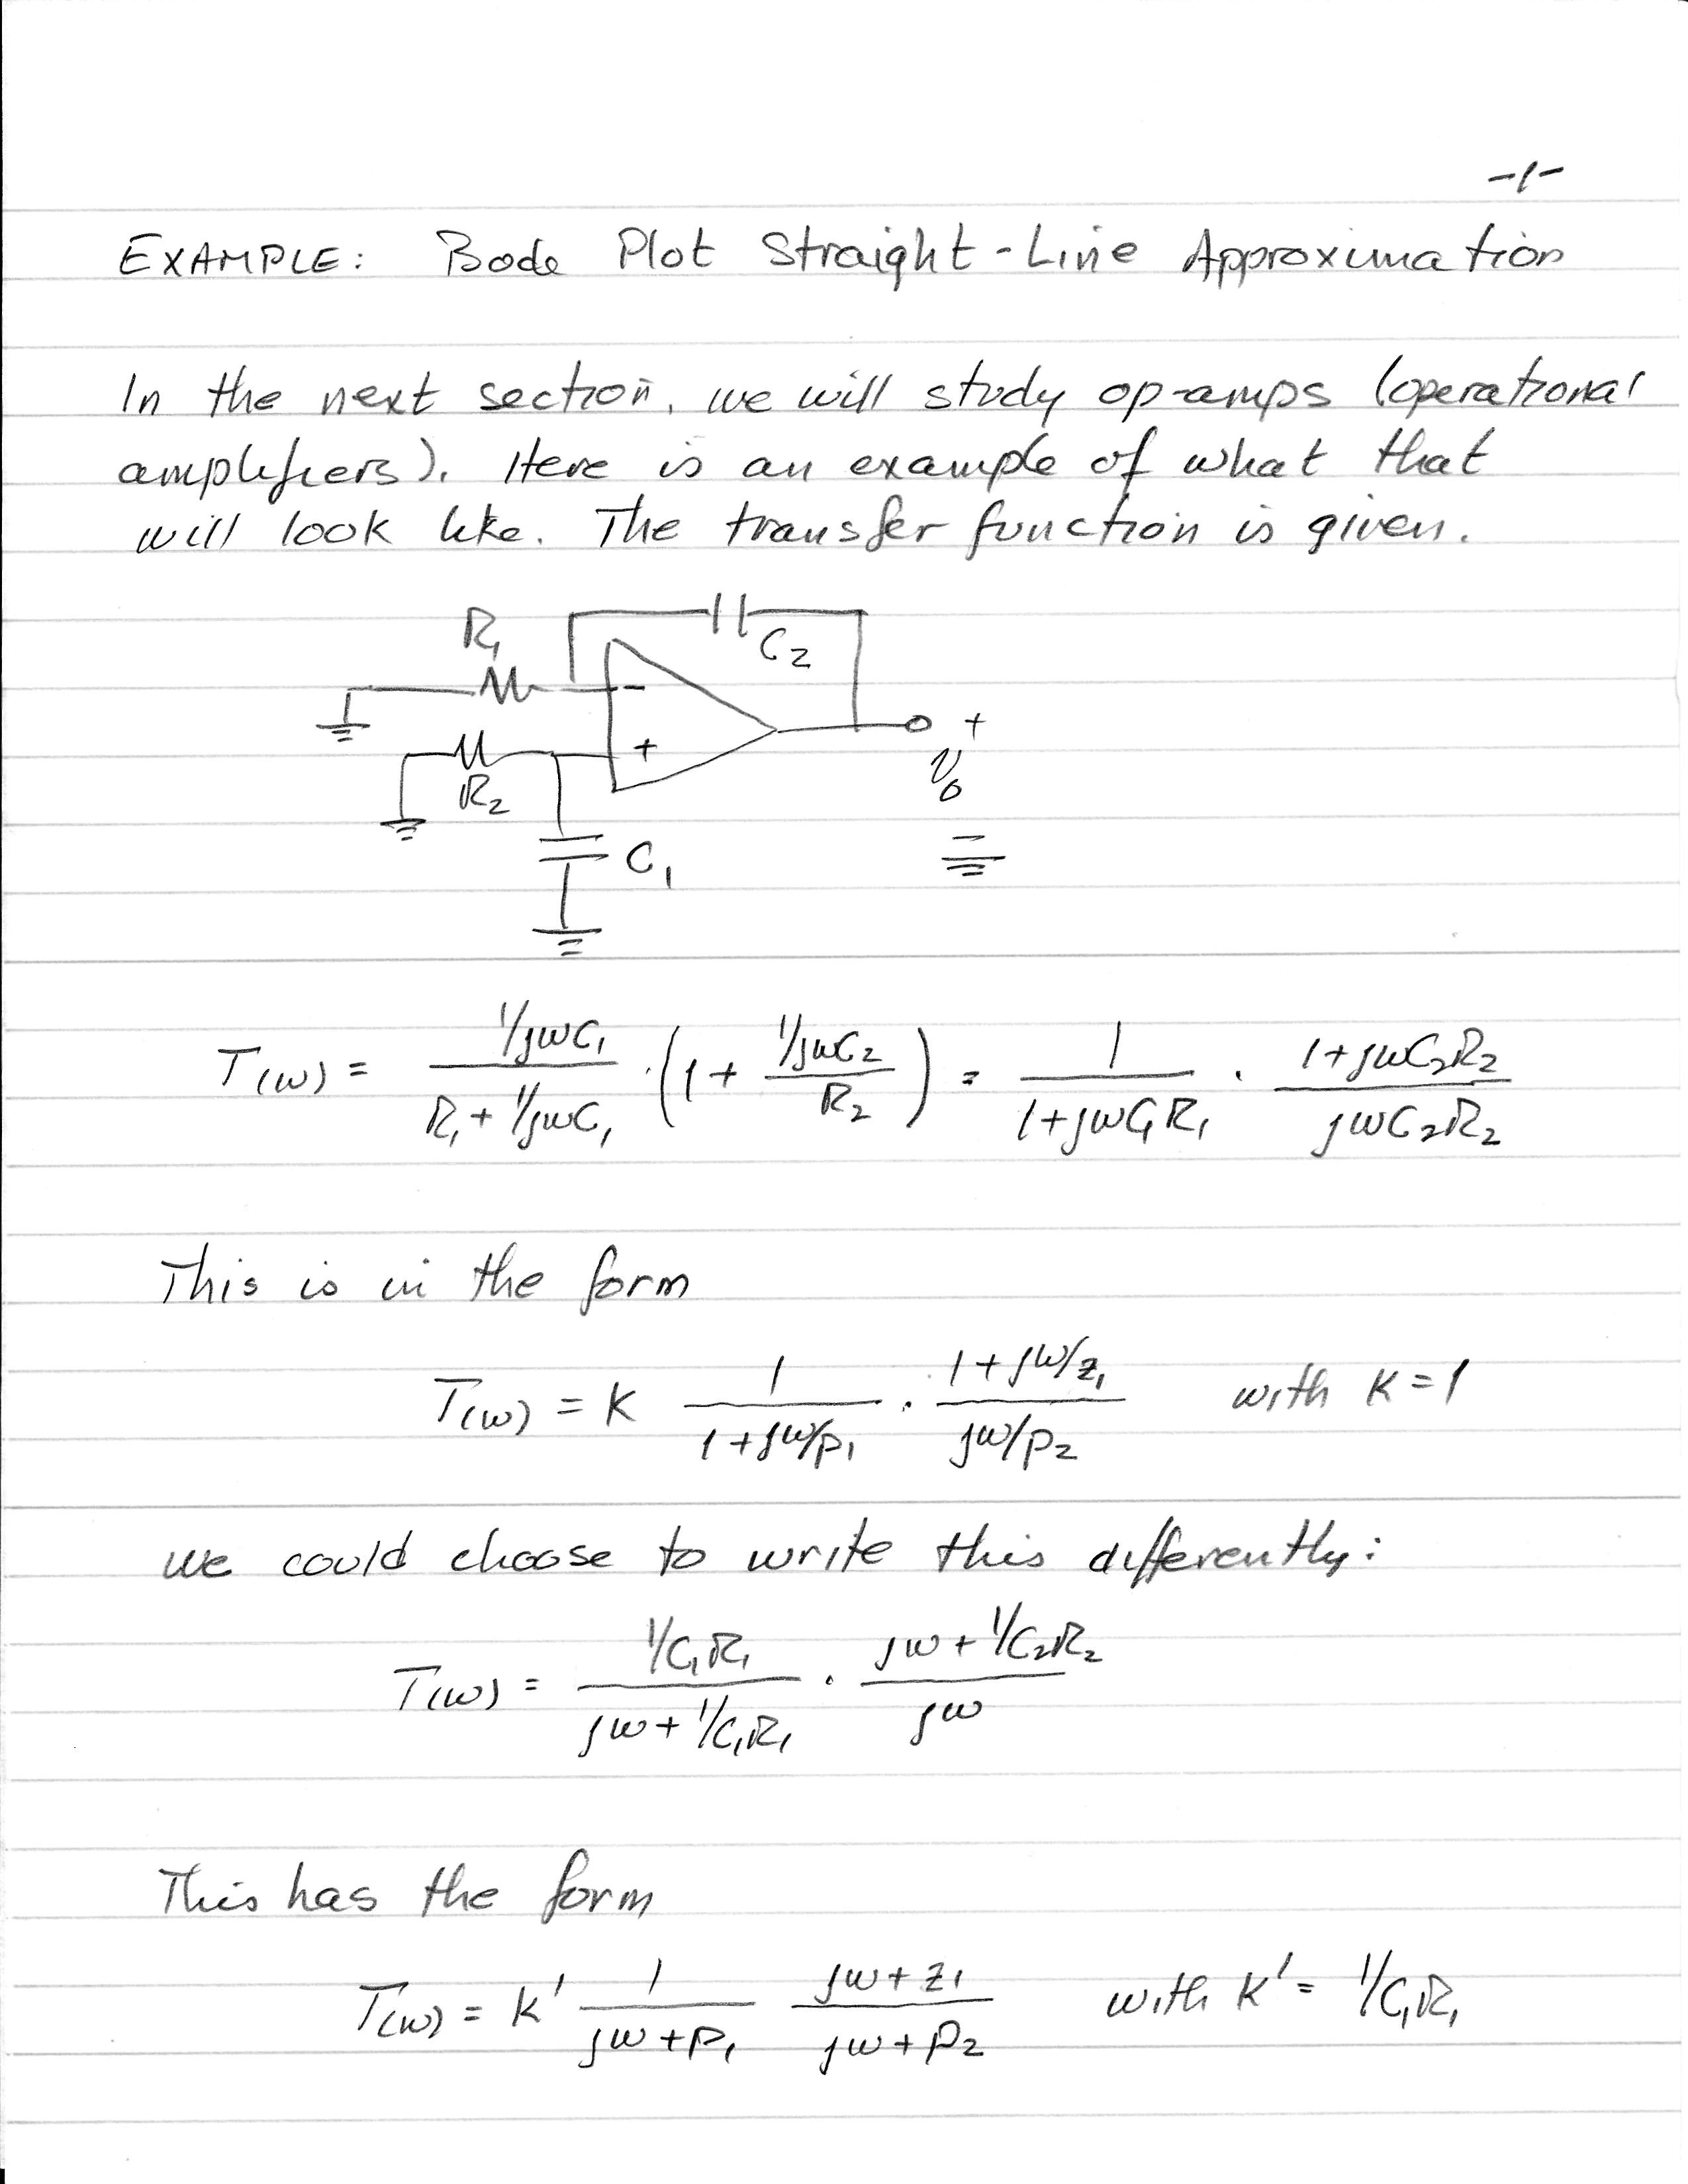 -1-
EXAMPLE: Bode Plot Straight-Line Approximation
In the next section, we will study op-amps (operational
amplifiers). Here is an example of what that
will look like. The transfer function is given.
R1
C2
-
+
R2
+
V0
-
C1
T(ω) = (1/jωC1)/(R1 + 1/jωC1) · (1 + (1/jωC2)/R2) = 1/(1+jωC1R1) · (1+jωC2R2)/(jωC2R2)
This is in the form
T(ω) = K 1/(1+jω/p1) · (1+jω/z1)/(jω/p2) with K=1
we could choose to write this differently:
T(ω) = (1/C1R1)/(jω + 1/C1R1) · (jω + 1/C2R2)/(jω)
This has the form
T(ω) = K' 1/(jω+p1) (jω+z1)/(jω+p2) with K' = 1/C1R1